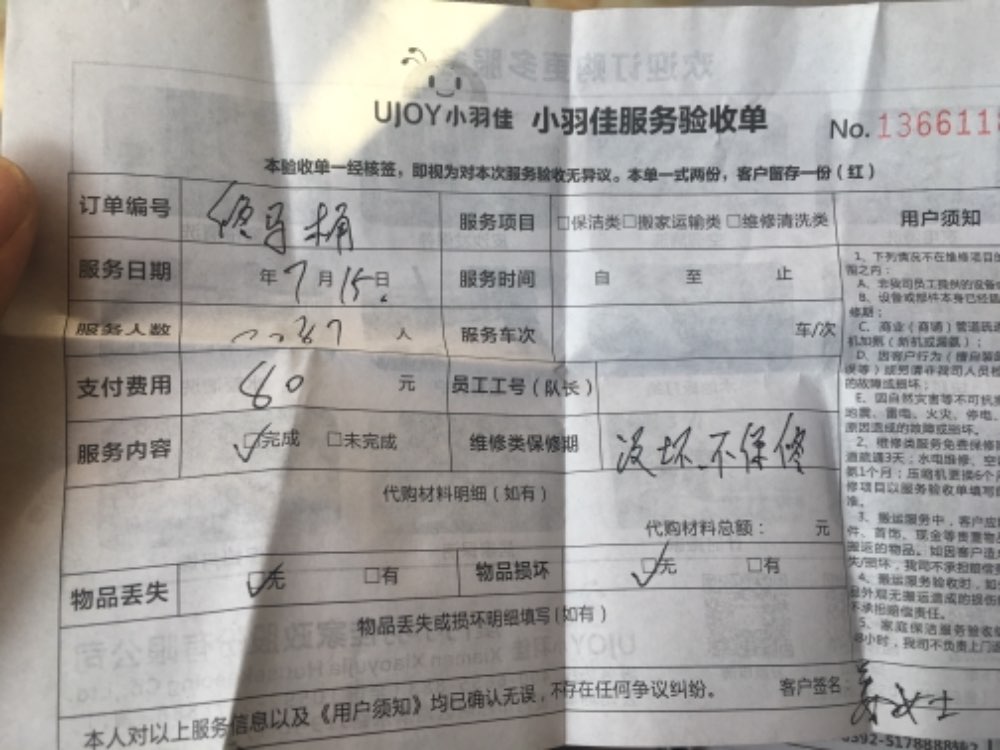 UJOY小羽佳 小羽佳服务验收单 No. 136611
本验收单一经核签，即视为对本次服务验收无异议。本单一式两份，客户留存一份（红）
订单编号 修马桶 服务项目 □保洁类□搬家运输类 □维修清洗类
服务日期 年7月15日 服务时间 自 至 止
服务人数 人 服务车次 车/次
支付费用 60 元 员工工号（队长）
服务内容 □完成 □未完成 维修类保修期 没坏.不保修
代购材料明细（如有）
代购材料总额： 元
物品丢失 □无 □有 物品损坏 □无 □有
物品丢失或损坏明细填写（如有）
本人对以上服务信息以及《用户须知》均已确认无误，不存在任何争议纠纷。 客户签名： 女士
用户须知
1、下列情况不在维修项目
围之内：
A、非我司员工提供的设备
B、设备或部件本身已经
修期；
C、商业（商铺）管道疏
机加氨（新机或漏氨）；
D、因客户行为（擅自
误等）或另请非我司人员
的故障或损坏；
E、因自然灾害等不可抗
地震、雷电、火灾、停电、
原因造成的故障或损坏。
2、维修类服务免费保修
道疏通3天；水电维修、空
氨1个月；压缩机更换6个
修项目以服务验收单填写
准。
3、搬运服务中，客户应
件、首饰、现金等贵重物
搬运的物品。如因客户造
失/损坏，我司不承担赔偿
4、搬运服务验收时，如
且外观无搬运造成的损伤
不承担赔偿责任。
5、家庭保洁服务验收
小时，我司不负责上门